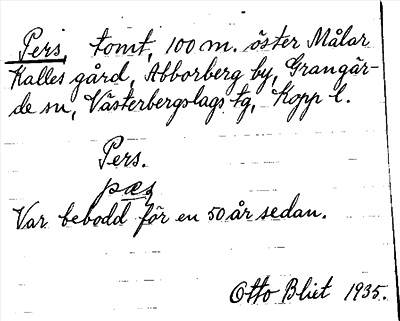 Pers, tomt, 100 m. öster Målar
Kalles gård, Abborberg by, Grangär-
de sn, Västerbergslags tg, Kopp l.
Pers.
pæs
Var bebodd för en 50 år sedan.
Otto Blixt 1935.